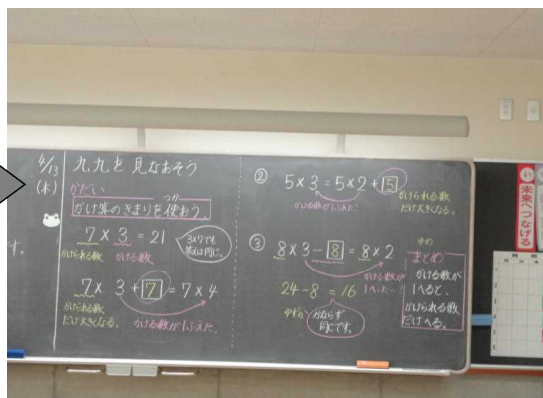 4/13
(木)
九九を見なおそう
かだい
かけ算のきまりを使おう。
つか
7 × 3 = 21
かけられる数 かける数
3×7でも
答えは同じ。
7 × 3 + 7 = 7 × 4
かけられる数
だけ大きくなる。
かける数が1ふえた。
す。
② 5 × 3 = 5 × 2 + 5
かける数が1ふえた!
かけられる数
だけ大きくなる。
③ 8 × 3 - 8 = 8 × 2
かける数が
1へった
24 - 8 = 16
かならず
同じです。
まとめ
かける数が
1へると、
かけられる数
だけへる。
未来へつなげる